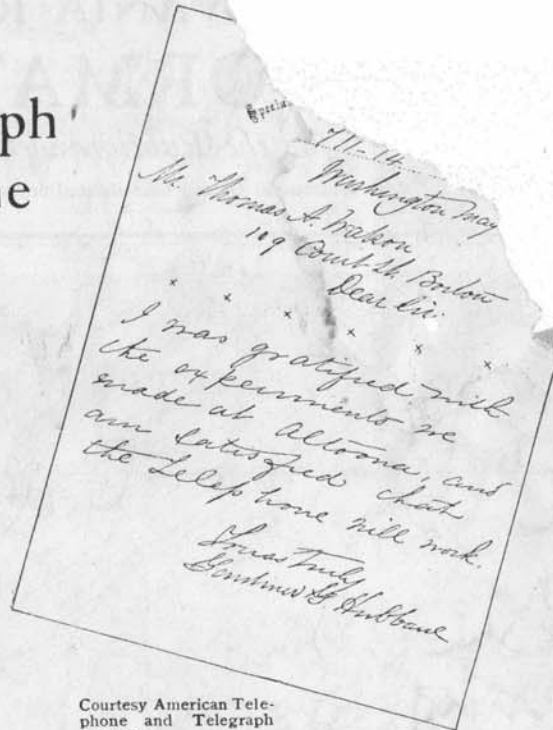 ph
e
Special
711-14
Washington May
Mr. Thomas A. Watson
109 Court St. Boston
Dear Sir.
x x x x x x
I was gratified with
the experiments we
made at Altoona, and
am satisfied that
the telephone will work.
Yours Truly
Gardiner G Hubbard
Courtesy American Tele-
phone and Telegraph